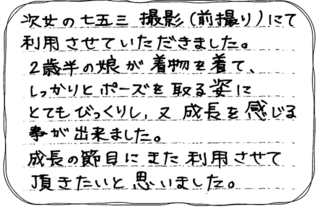 次女の七五三 撮影(前撮り)にて
利用させていただきました。
2歳半の娘が着物を着て、
しっかりとポーズを取る姿に
とてもびっくりし、又 成長を感じる
事が出来ました。
成長の節目にまた利用させて
頂きたいと思いました。